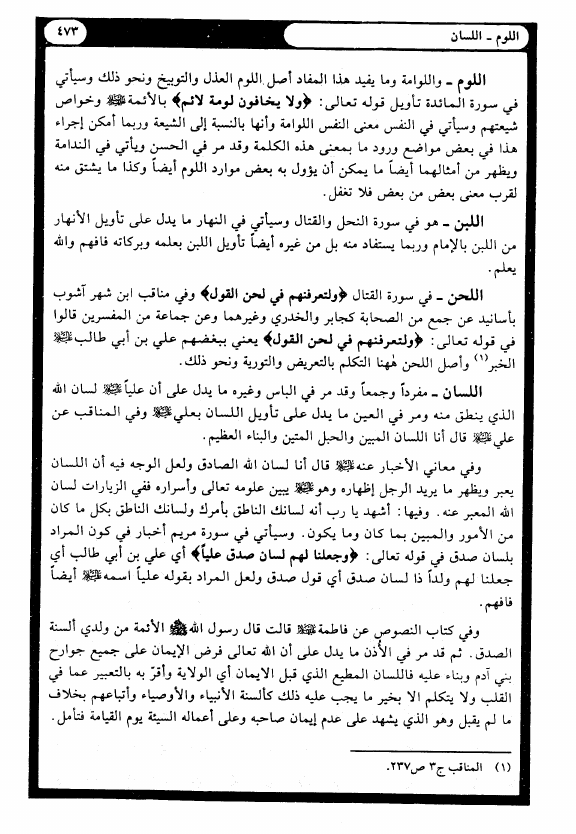 اللوم ـ اللسان
٤٧٣
اللوم ـ واللوامة وما يفيد هذا المفاد أصل اللوم العذل والتوبيخ ونحو ذلك وسيأتي
في سورة المائدة تأويل قوله تعالى: ﴿ولا يخافون لومة لائم﴾ بالأئمة عليهم السلام وخواص
شيعتهم وسيأتي في النفس معنى النفس اللوامة وأنها بالنسبة إلى الشيعة وربما أمكن إجراء
هذا في بعض مواضع ورود ما بمعنى هذه الكلمة وقد مر في الحسن ويأتي في الندامة
ويظهر من أمثالهما أيضاً ما يمكن أن يؤول به بعض موارد اللوم أيضاً وكذا ما يشتق منه
لقرب معنى بعض من بعض فلا تغفل.
اللبن ـ هو في سورة النحل والقتال وسيأتي في النهار ما يدل على تأويل الأنهار
من اللبن بالإمام وربما يستفاد منه بل من غيره أيضاً تأويل اللبن بعلمه وبركاته فافهم والله
يعلم.
اللحن ـ في سورة القتال ﴿ولتعرفنهم في لحن القول﴾ وفي مناقب ابن شهر آشوب
بأسانيد عن جمع من الصحابة كجابر والخدري وغيرهما وعن جماعة من المفسرين قالوا
في قوله تعالى: ﴿ولتعرفنهم في لحن القول﴾ يعني ببغضهم علي بن أبي طالب عليه السلام
الخبر(١) وأصل اللحن هٰهنا التكلم بالتعريض والتورية ونحو ذلك.
اللسان ـ مفرداً وجمعاً وقد مر في الباس وغيره ما يدل على أن علياً عليه السلام لسان الله
الذي ينطق منه ومر في العين ما يدل على تأويل اللسان بعلي عليه السلام وفي المناقب عن
علي عليه السلام قال أنا اللسان المبين والحبل المتين والبناء العظيم.
وفي معاني الأخبار عنه عليه السلام قال أنا لسان الله الصادق ولعل الوجه فيه أن اللسان
يعبر ويظهر ما يريد الرجل إظهاره وهو عليه السلام يبين علومه تعالى وأسراره ففي الزيارات لسان
الله المعبر عنه. وفيها: أشهد يا رب أنه لسانك الناطق بأمرك ولسانك الناطق بكل ما كان
من الأمور والمبين بما كان وما يكون. وسيأتي في سورة مريم أخبار في كون المراد
بلسان صدق في قوله تعالى: ﴿وجعلنا لهم لسان صدق علياً﴾ أي علي بن أبي طالب أي
جعلنا لهم ولداً ذا لسان صدق أي قول صدق ولعل المراد بقوله علياً اسمه عليه السلام أيضاً
فافهم.
وفي كتاب النصوص عن فاطمة عليها السلام قالت قال رسول الله ﷺ الأئمة من ولدي ألسنة
الصدق. ثم قد مر في الأذن ما يدل على أن الله تعالى فرض الإيمان على جميع جوارح
بني آدم وبناء عليه فاللسان المطيع الذي قبل الايمان أي الولاية وأقرّ به بالتعبير عما في
القلب ولا يتكلم الا بخير ما يجب عليه ذلك كألسنة الأنبياء والأوصياء وأتباعهم بخلاف
ما لم يقبل وهو الذي يشهد على عدم إيمان صاحبه وعلى أعماله السيئة يوم القيامة فتأمل.
(١) المناقب ج٣ ص٢٣٧.